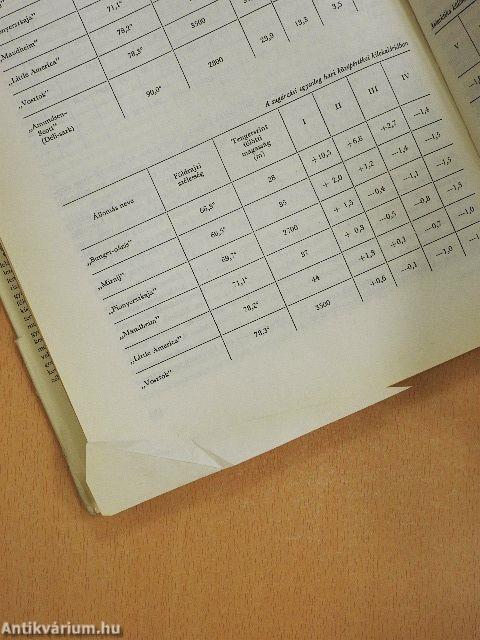 „Mandheim"
71,1°
„Little America"
78,2°
3500
„Vosztok"
78,3°
2800
23,9
13,5
3,5
„Amundsen-
Scott"
(Déli-sark)
90,0°
A sugárzási egyenleg havi középértékei kilokalóriában
Állomás neve
Földrajzi
szélesség
Tengerszint
feletti
magasság
(m)
I
II
III
IV
V
„Bunger-oázis"
66,3°
28
+10,5
+6,6
+2,7
—1,4
„Mirnij"
66,5°
35
+ 2,0
+1,2
—1,4
—1,5
„Pionyerszkaja"
69,7°
2700
+ 1,5
—0,4
—1,1
—1,5
„Mandheim"
71,1°
37
+ 0,8
—0,5
—0,8
—1,5
„Little America"
78,2°
44
+1,5
+0,1
—0,7
—1,0
„Vosztok"
78,3°
3500
+0,6
—0,1
—1,0
Antikvárium.hu